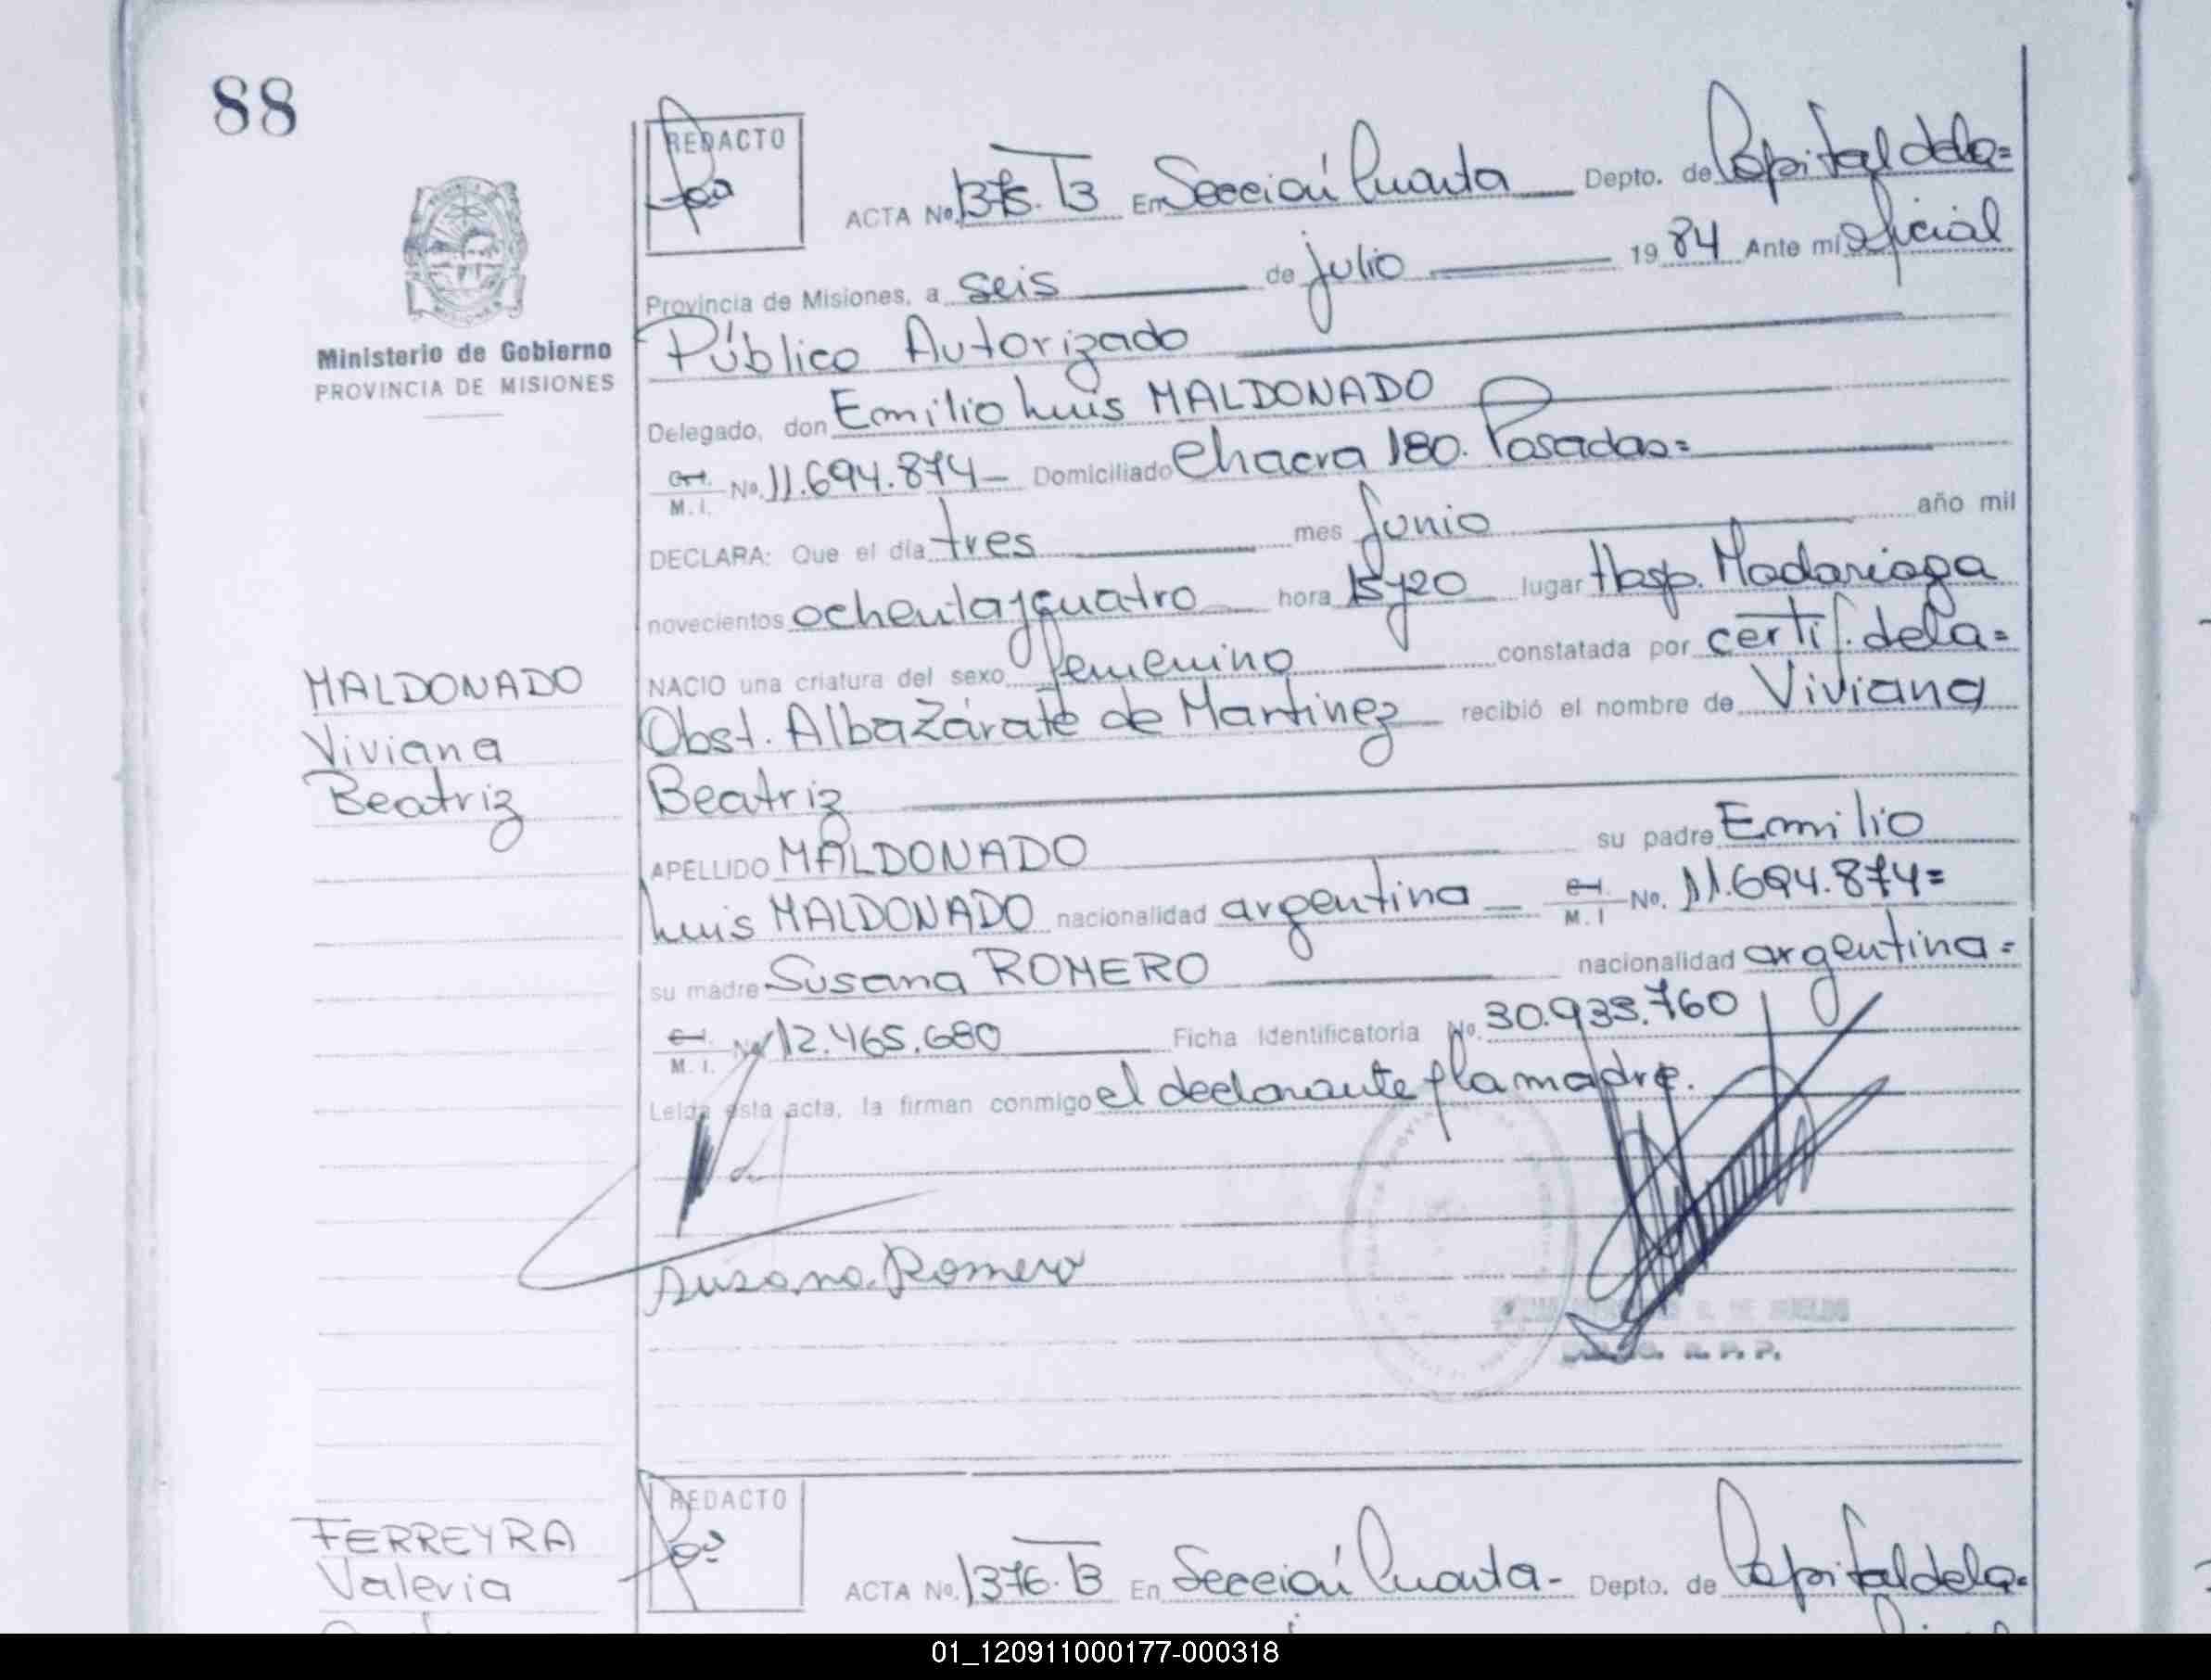 88
REDACTO
ACTA No. 1375. T3 En Sección Cuarta Depto. de Capital dela=
Provincia de Misiones, a seis de julio 1984 Ante mí Oficial
Público Autorizado
Ministerio de Gobierno
PROVINCIA DE MISIONES
Delegado, don Emilio Luis MALDONADO
C.I. M. I. No. 11.694.874- Domiciliado Chacra 180. Posadas=
DECLARA: Que el día tres mes Junio año mil
novecientos ochentaycuatro hora 15y20 lugar Hosp. Madariaga
NACIO una criatura del sexo femenino constatada por certif. dela=
MALDONADO
Viviana
Beatriz
Obst. Alba Zárate de Martinez recibió el nombre de Viviana
Beatriz
APELLIDO MALDONADO su padre Emilio
Luis MALDONADO nacionalidad argentina C.I. M. I No. 11.694.874=
su madre Susana ROMERO nacionalidad argentina=
C.I. M. I. No 12.465.680 Ficha Identificatoria No. 30.935.760
Leida esta acta, la firman conmigo el declarante y la madre.
Susana Romero
DE SUELDO
R. P. P.
REDACTO
FERREYRA
Valeria
ACTA No. 1376. T3 En Sección Cuarta- Depto. de Capital dela=
01_120911000177-000318